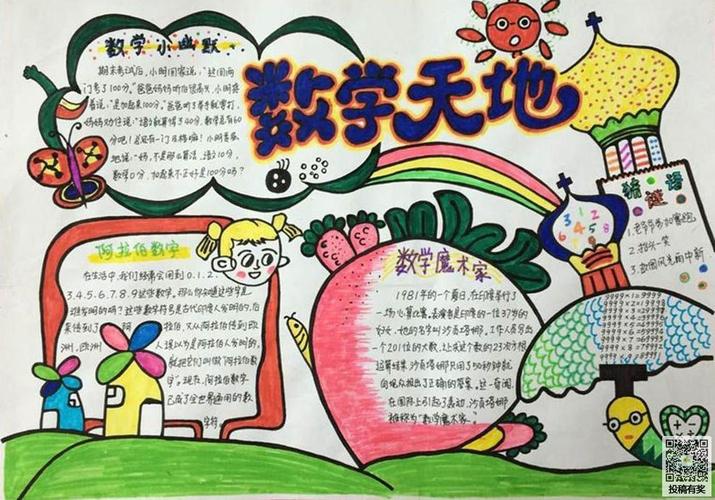 数学天地
数学小幽默
期末考试后,小明回家说:“这回两
门考了100分。”爸爸妈妈听后很高兴,小明接
着说:“是加起来100分。”爸爸听了举手就要打,
妈妈劝住说:“语文就算得了40分,数学总有60
分吧!总还有一门及格嘛!小明着急
地说:“妈,不是那么算法,语文10分,
数学0分,加起来不正好是100分吗?
阿拉伯数字
在生活中,我们经常会用到0.1.2.
3.4.5.6.7.8.9这些数字。那么你知道这些字是
谁发明的吗?这些数字符号是古代印度人发明的,后
来传到了阿拉伯,又从阿拉伯传到欧
洲,欧洲人误以为是阿拉伯人发明的,
就把它们叫做“阿拉伯数
字”。现在,阿拉伯数字
已成了全世界通用的数
字符.
数学魔术家
1981年的一个夏日,在印度举行了
一场心算比赛,表演者是印度的一位37岁的
妇女,她的名字叫沙贡塔娜。工作人员写出
一个201位的大数,让求这个数的23次方根
运算结果,沙贡塔娜只用了50秒钟就
向观众报出了正确的答案。这一奇闻,
在国际上引起了轰动,沙贡塔娜
被称为“数学魔术家。
猜谜语
1.老爷爷参加赛跑
2.抬头一笑
1 2
3 8
4
投稿有奖